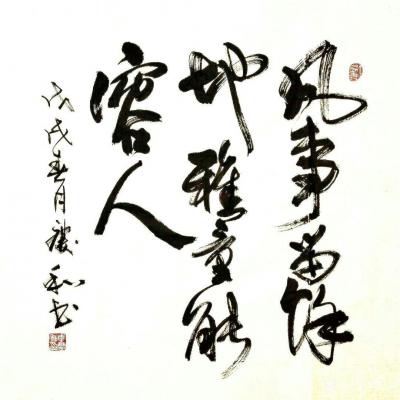 凡事留馀
地雅量能
容人
戊戌春月和书